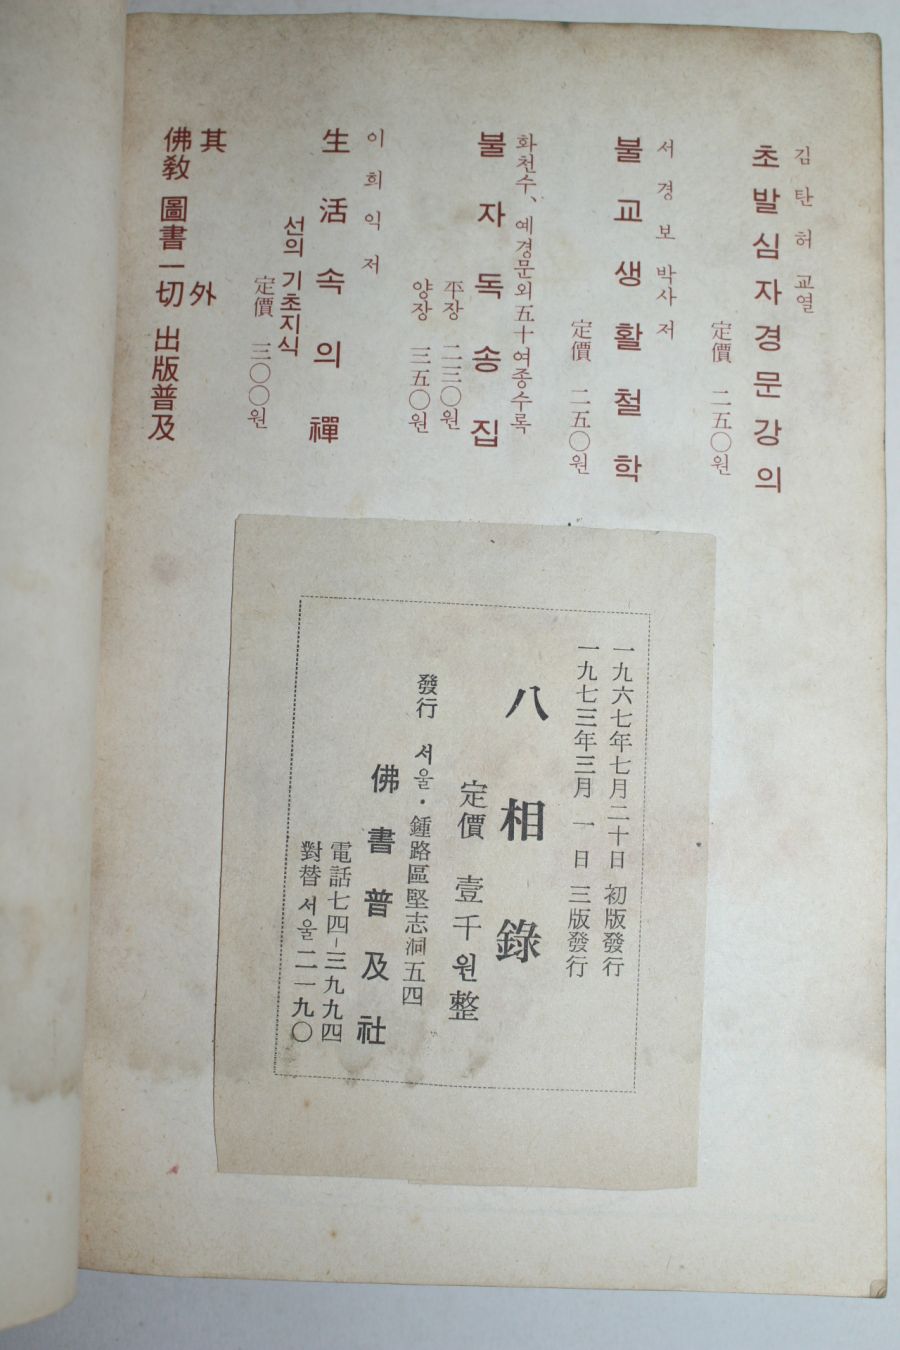 김탄허 교열
초발심자경문강의
定價 二五〇원
서경보 박사 저
불교생활철학
定價 二五〇원
화천수、예경문외五十여종수록
불자독송집
平장 二三〇원
양장 三五〇원
이희익 저
生活속의禪
선의 기초지식
定價 三〇〇원
其外
佛敎圖書一切出版普及
一九六七年七月二十日 初版發行
一九七三年三月 一 日 三版發行
八相錄
定價 壹千원整
發行 서울·鍾路區堅志洞五四
佛書普及社
電話七四-三九九四
對替 서울二一九〇